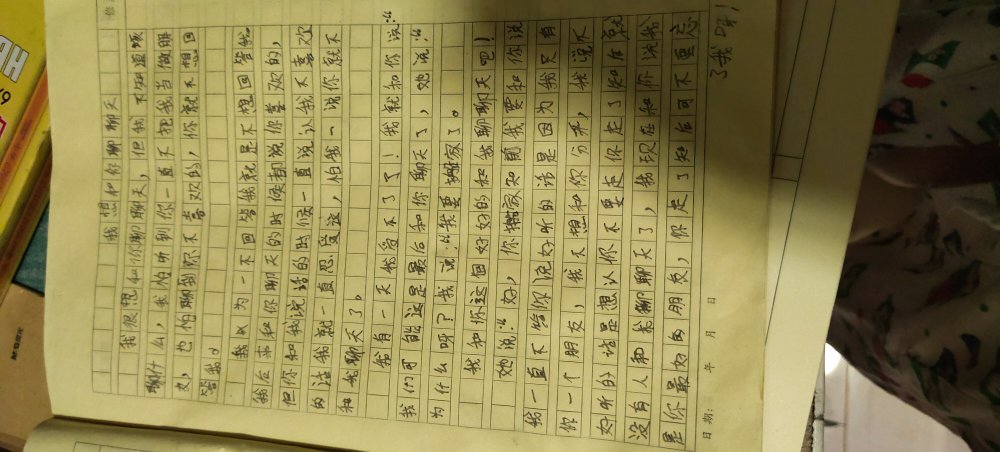 我想和你聊聊天
我很想和你聊聊天，但我不知道烦
聊什么，我怕听到你一直不把我当做朋
友，也怕聊到你不喜欢的，你就不想回
答我。
我以为一不回答我就是不想回答我
我后来和你聊天的时候都说你喜欢的，
但你和我说话的时候一直说认我不喜欢
的话我就一直忍受这，怕我一说你就不
和我聊天了。
我有一天我受不了了！我就和你说：“
我们可能这是最后和你聊天了，她说：“
为什么呀？我说：“我要搬家了。
我和你这回好好的和我聊聊天吧！
她说：“好，你搬家知前我要和你说
我一直不管你说好听的话是因为我只有
你一个朋友，我不想和你分来，我说不
好听的话是想认你不要走你走了知后就
没有人和我聊聊天了，我现在和你说我
是你最好的朋友，你走了知后可不要忘
了我呀！
日期： 年 月 日